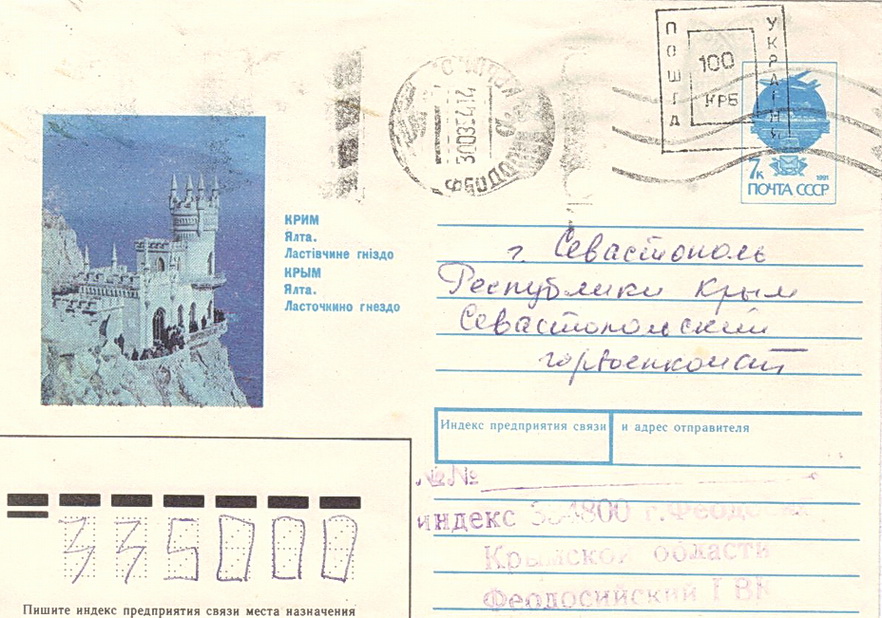 ПОШТА
УКРАЇНИ
100
КРБ
7к
1991
ПОЧТА СССР
30035414
КРИМ
Ялта.
Ластівчине гніздо
КРЫМ
Ялта.
Ласточкино гнездо
г. Севастополь
Республики Крым
Севастопольский
горвоенкомат
Индекс предприятия связи и адрес отправителя
№№
индекс 334800 г.Феодосия
Крымской области
Феодосийский ГВК
335000
Пишите индекс предприятия связи места назначения